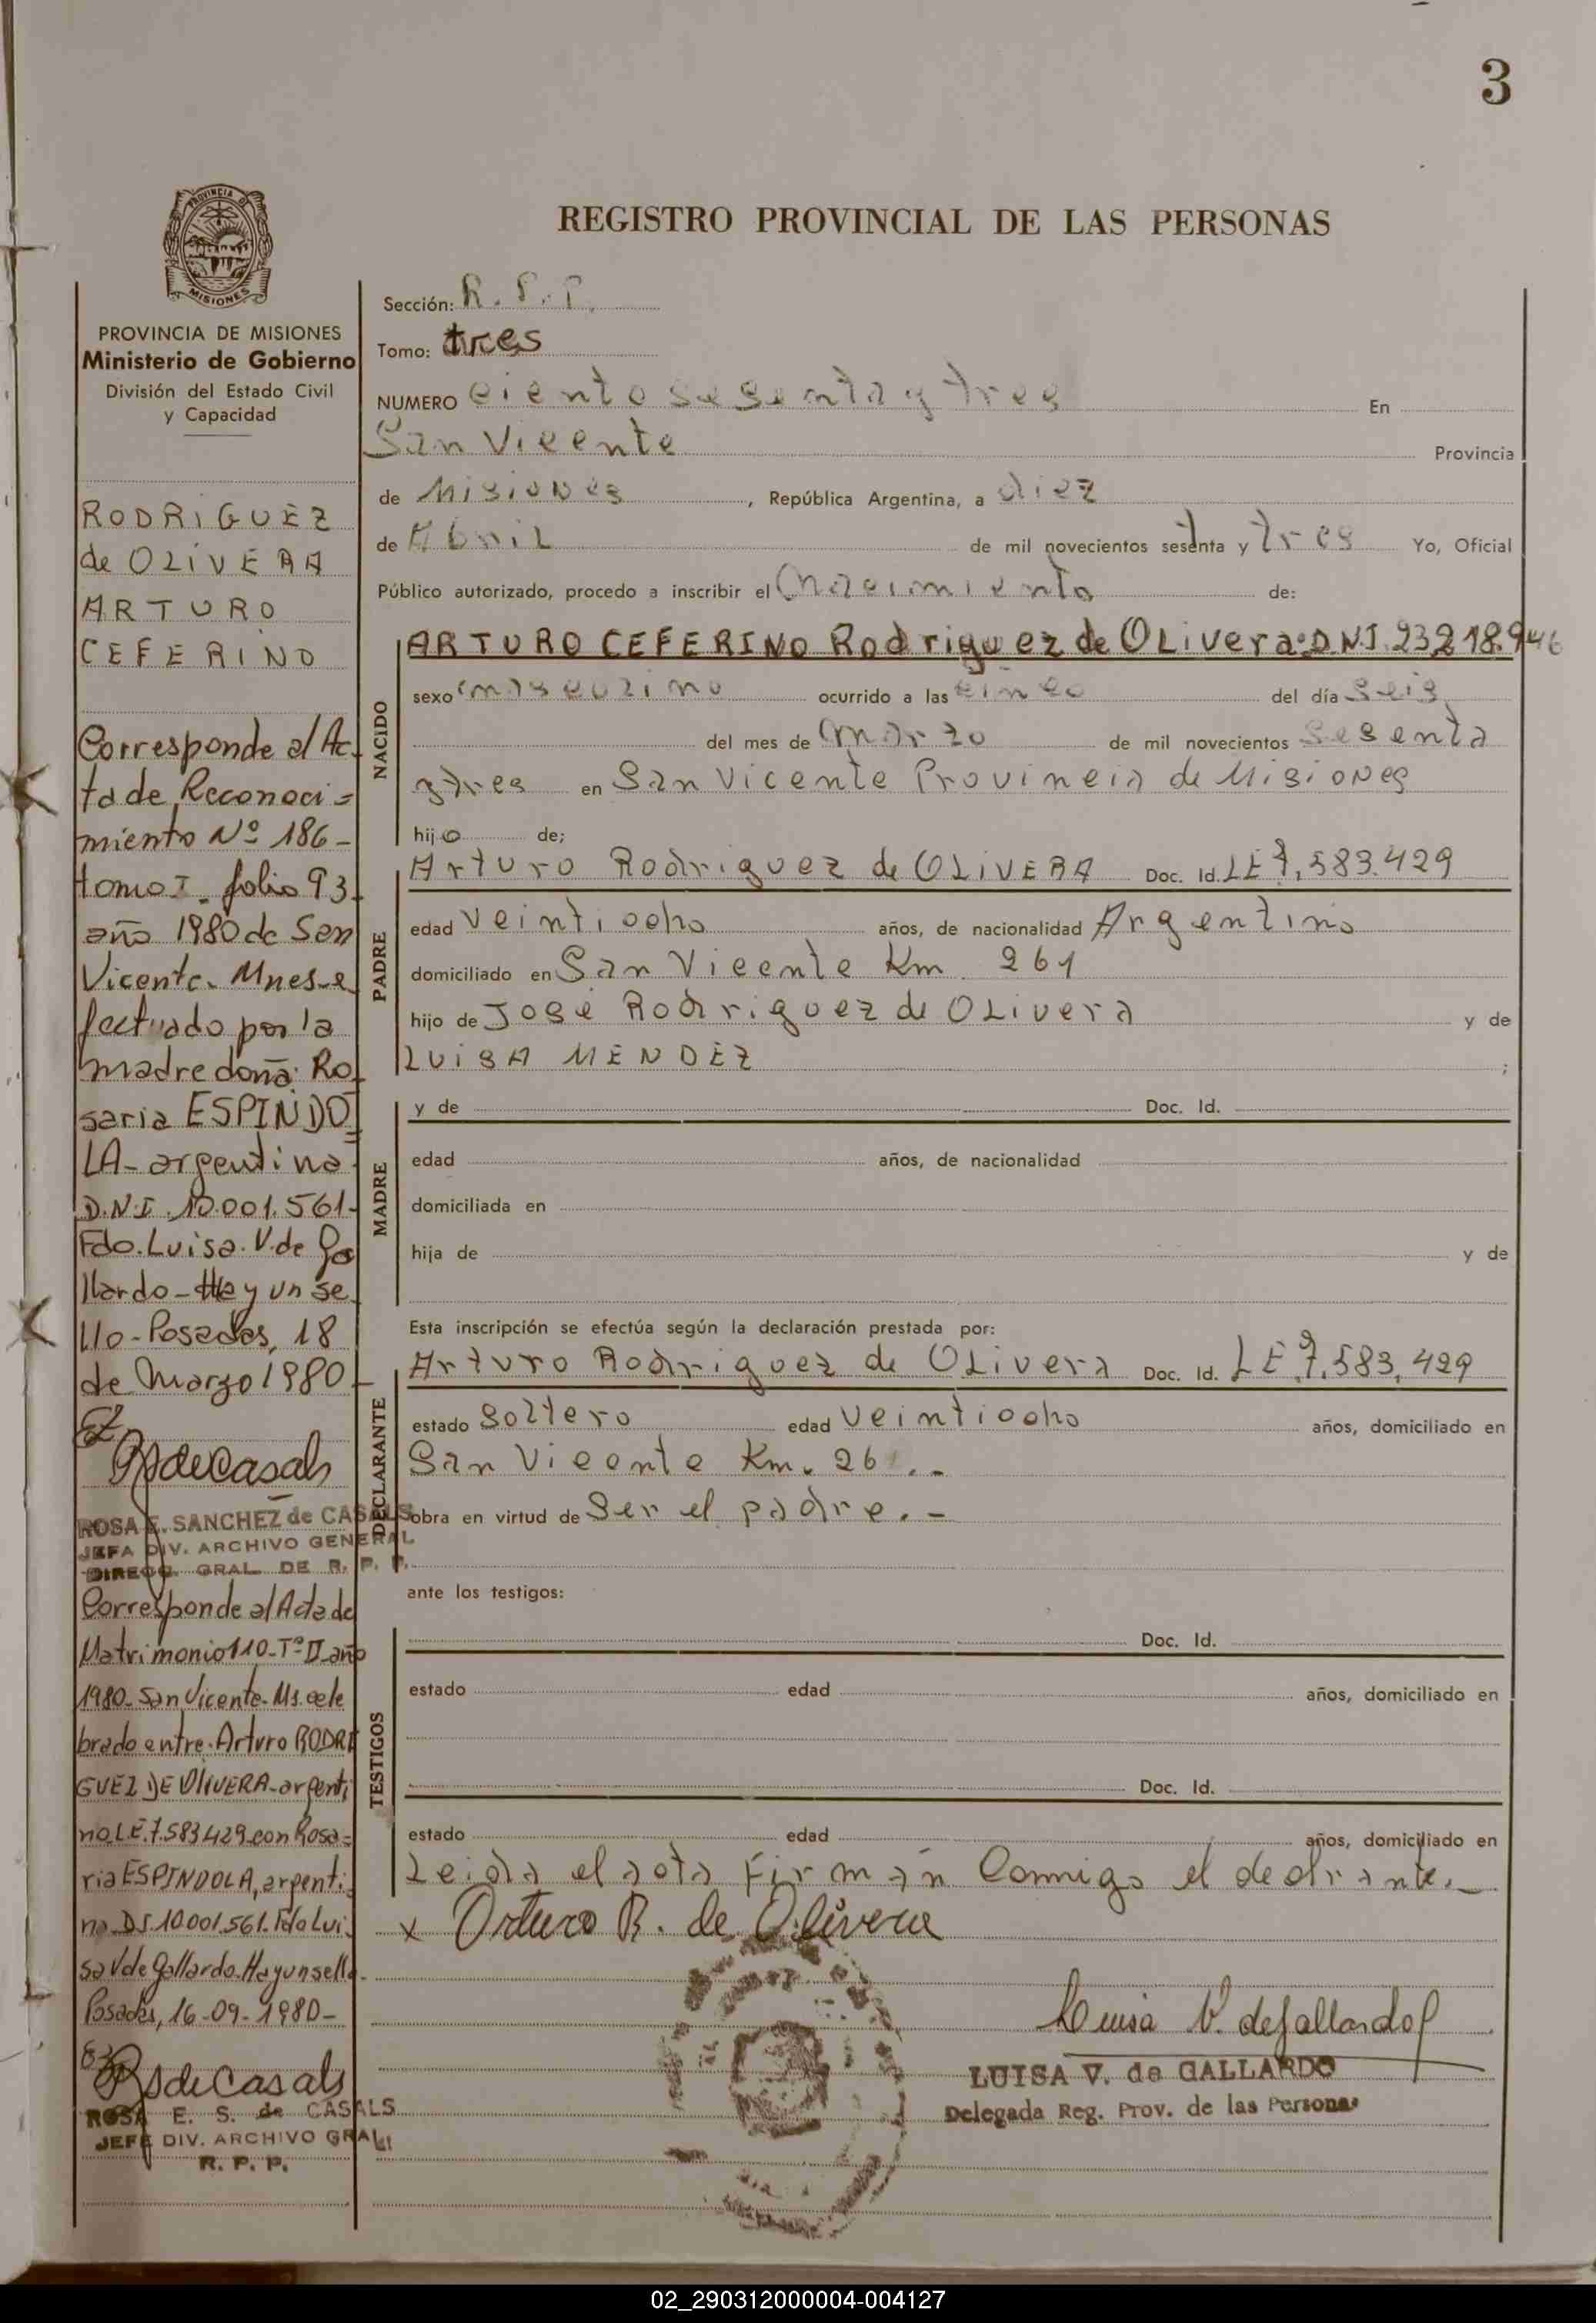 3
PROVINCIA DE
MISIONES
REGISTRO PROVINCIAL DE LAS PERSONAS
PROVINCIA DE MISIONES
Ministerio de Gobierno
División del Estado Civil
y Capacidad
RODRIGUEZ
de OLIVERA
ARTURO
CEFERINO
Corresponde al Ac-
ta de Reconoci=
miento Nº 186-
tomo I. folio 93-
año 1980 de San
Vicente. Mnes-e
fectuado por la
madre doña: Ro-
saria ESPINDO
LA-argentina-
D.N.I. 10.001.561-
Fdo. Luisa. V. de Ga
llardo-Hay un se
llo-Posadas, 18
de Marzo 1980-
RSdeCasals
ROSA E. SANCHEZ de CASALS
JEFA DIV. ARCHIVO GENERAL
DIREC. GRAL. DE R. P. P.
Corresponde al Acta de
Matrimonio 110-Tº II-año
1980-San Vicente-Ms. cele
brado entre. Arturo RODRI
GUEZ DE OLIVERA-argenti
no. L.E. 7.583.429 con Rosa=
ria ESPINDOLA, argenti-
na. DI 10.001.561. Fdo Lui-
sa V de Gallardo. Hay un sello.
Posadas, 16-09-1980-
RSdeCasals
ROSA E. S. de CASALS
JEFE DIV. ARCHIVO GRAL.
R. P. P.
Sección: R. P. P.
Tomo: tres
NUMERO ciento sesenta y tres En
San Vicente Provincia
de Misiones, República Argentina, a diez
de Abril de mil novecientos sesenta y tres Yo, Oficial
Público autorizado, procedo a inscribir el Nacimiento de:
NACIDO
ARTURO CEFERINO Rodriguez de OLivera: D.N.I. 23.218.946
sexo masculino ocurrido a las cinco del día seis
del mes de marzo de mil novecientos sesenta
y tres en San Vicente Provincia de Misiones
hijo de;
PADRE
Arturo Rodriguez de OLIVERA Doc. Id. LE 7.583.429
edad veintiocho años, de nacionalidad Argentino
domiciliado en San Vicente Km 261
hijo de José Rodriguez de OLivera y de
LUISA MENDEZ ;
MADRE
y de Doc. Id.
edad años, de nacionalidad
domiciliada en
hija de y de
Esta inscripción se efectúa según la declaración prestada por:
DECLARANTE
Arturo Rodriguez de OLivera Doc. Id. LE 7.583.429
estado soltero edad veintiocho años, domiciliado en
San Vicente Km. 26
obra en virtud de ser el padre.-
ante los testigos:
TESTIGOS
Doc. Id.
estado edad años, domiciliado en
Doc. Id.
estado edad años, domiciliado en
Leida el acta Firman Conmigo el declrante.-
x Arturo R. de Olivera
Luisa V. de Gallardo
LUISA V. de GALLARDO
Delegada Reg. Prov. de las Personas
02_290312000004-004127